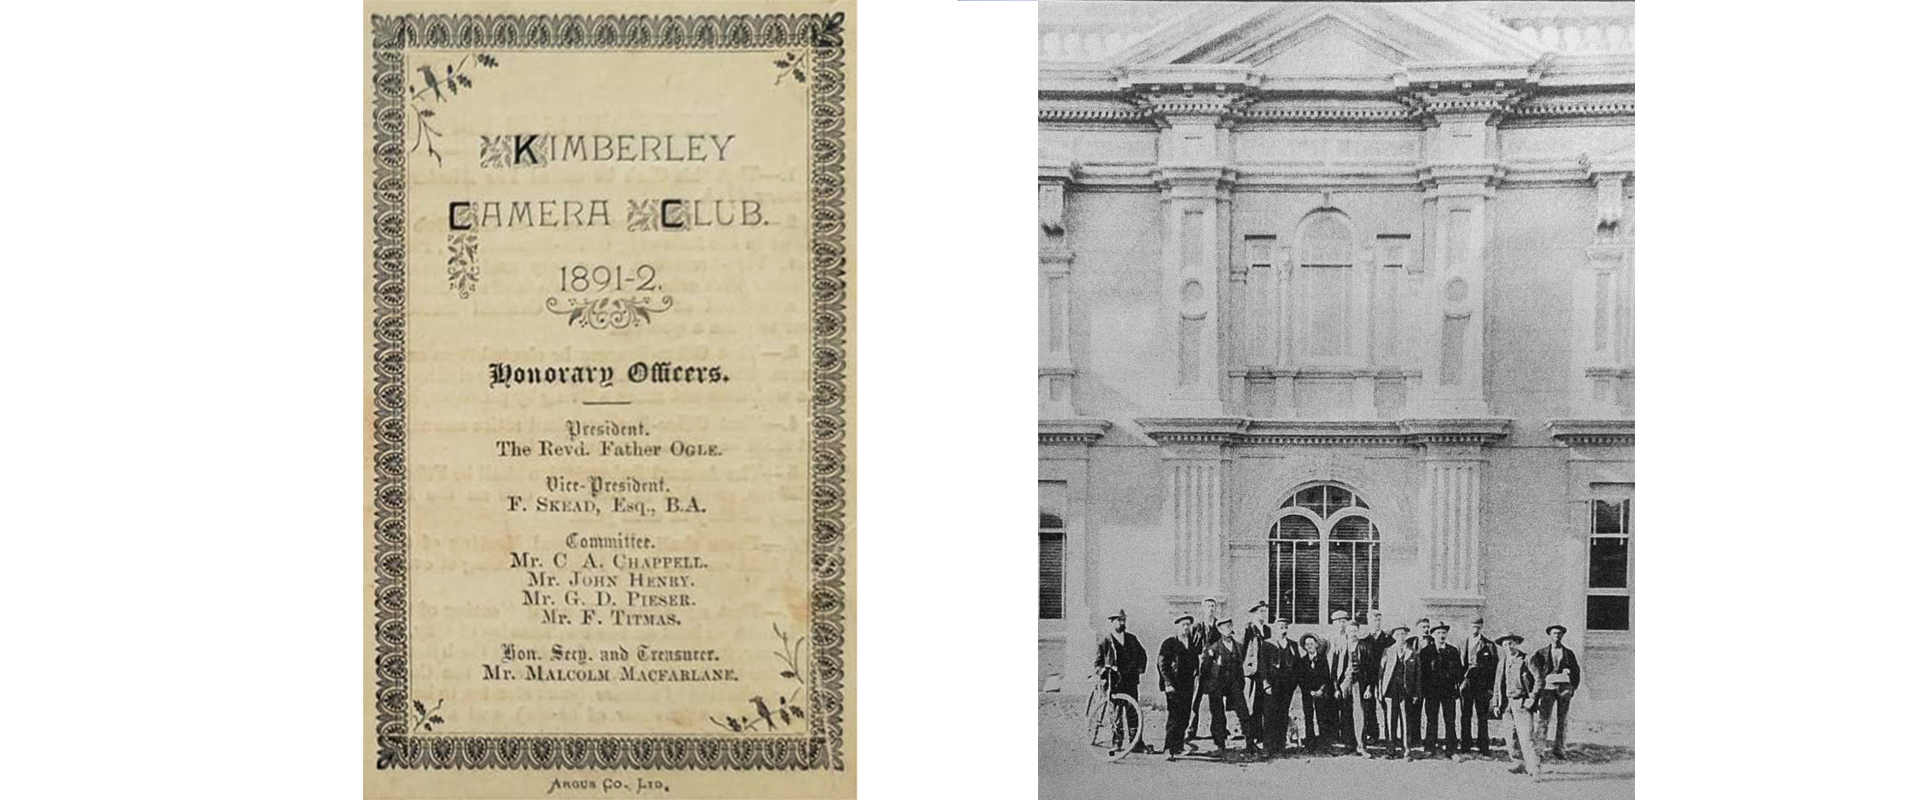 KIMBERLEY
CAMERA CLUB.
1891-2.
Honorary Officers.
President.
The Revd. Father OGLE.
Vice-President.
F. SKEAD, Esq., B.A.
Committee.
Mr. C A. CHAPPELL.
Mr. JOHN HENRY.
Mr. G. D. PIESER.
Mr. F. TITMAS.
Hon. Secy. and Treasurer.
Mr. MALCOLM MACFARLANE.
ARGUS CO., LTD.